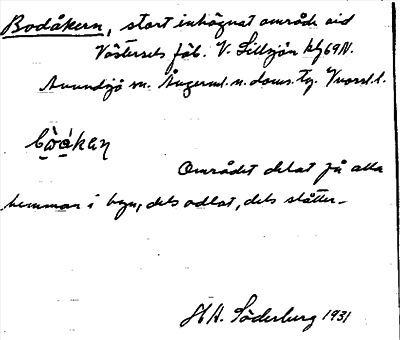 Bodåkern, stort inhägnat område vid
Västersels fäb. V. Lillsjön kbl 69 N.
Anundsjö sn. Ångerml. n. doms. tg. Vnorrl. l.
bò̀å̀kan
Området delat på alla
hemman i byn, dels odlat, dels slåtter.
H A. Söderberg 1931